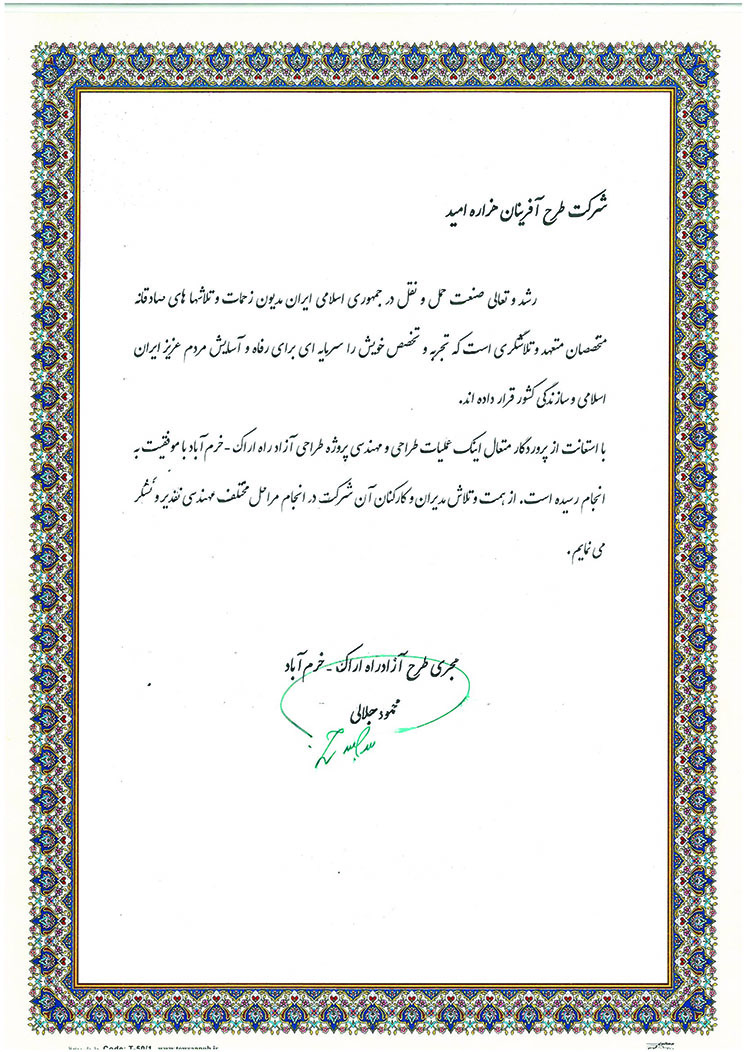 شرکت طرح آفرینان هزاره امید
رشد و تعالی صنعت حمل و نقل در جمهوری اسلامی ایران مدیون زحمات و تلاشها های صادقانه
متخصصان متعهد و تلاشگری است که تجربه و تخصص خویش را سرمایه ای برای رفاه و آسایش مردم عزیز ایران
اسلامی و سازندگی کشور قرار داده اند.
با استعانت از پروردگار متعال اینک عملیات طراحی و مهندسی پروژه طراحی آزاد راه اراک - خرم آباد با موفقیت به
انجام رسیده است. از همت و تلاش مدیران و کارکنان آن شرکت در انجام مراحل مختلف مهندسی تقدیر و تشکر
می نمایم.
مجری طرح آزادراه اراک - خرم آباد
محمود جلالی
Code: T-50/1